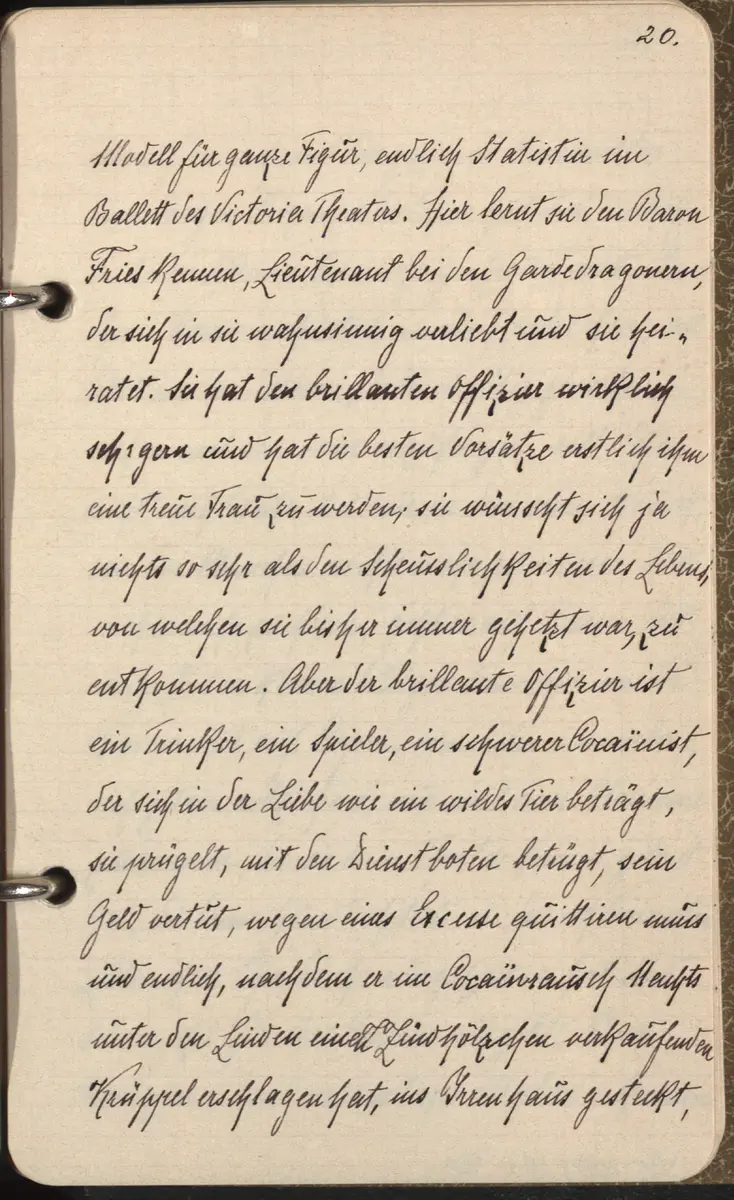 20.
Modell für ganze Figur, endlich Statistin im
Ballett des Victoria Theaters. Hier lernt sie den Baron
Fries kennen, Lieutenant bei den Gardedragonern,
der sich in sie wahnsinnig verliebt und sie hei-
ratet. Sie hat den brillanten Offizier wirklich
sehr gern und hat die besten Vorsätze erstlich ihm
eine treue Frau zu werden; sie wünscht sich ja
nichts so sehr als den Scheusslichkeiten des Lebens,
von welchen sie bisher immer gehetzt war, zu
entkommen. Aber der brillante Offizier ist
ein Trinker, ein Spieler, ein schwerer Cocaïnist,
der sich in der Liebe wie ein wildes Tier beträgt,
sie prügelt, mit den Dienstboten betrügt, sein
Geld vertut, wegen eines Excesse quittiren muss
und endlich, nachdem er im Cocaïnrausch Nachts
unter den Linden einen Zündhölzchen verkaufenden
Krüppel erschlagen hat, ins Irrenhaus gesteckt,